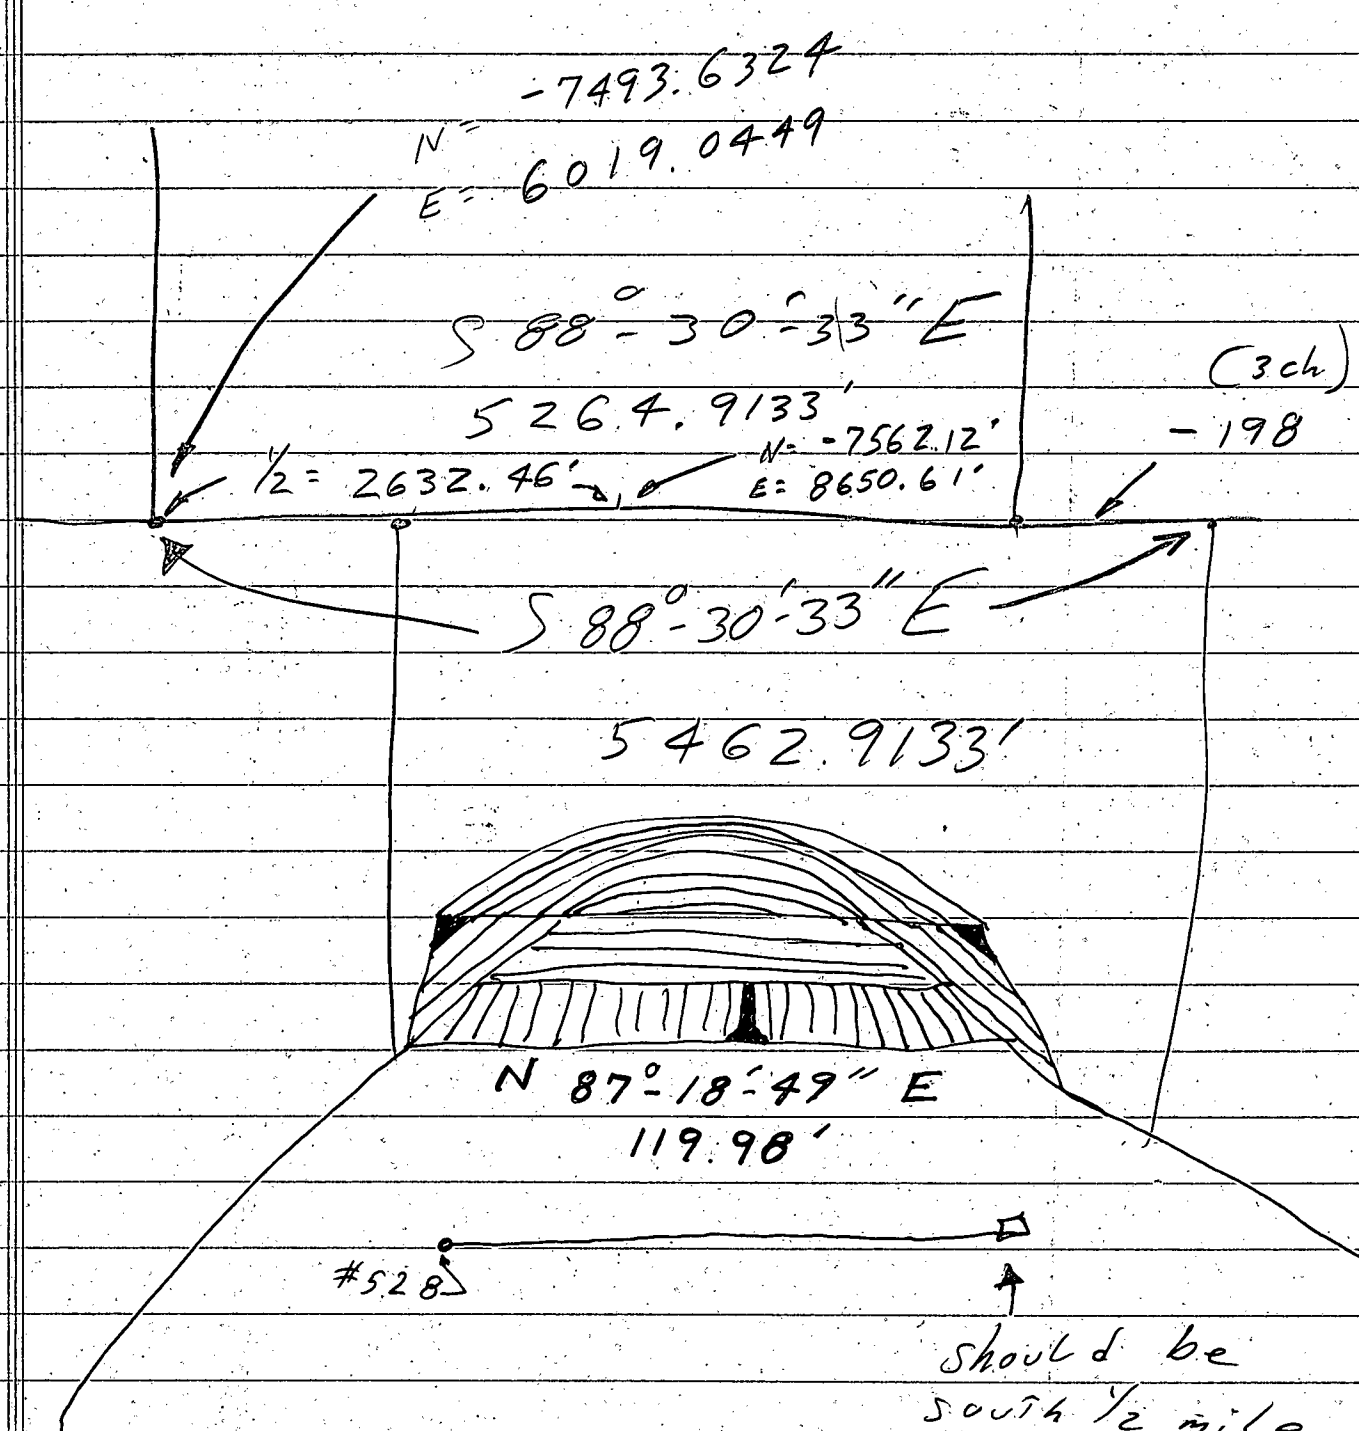 -7493.6324
N =
E = 6019.0449
S 88°-30'-33" E
(3ch)
5264.9133'
-198
N= -7562.12'
½ = 2632.46'
E= 8650.61'
S 88°-30'-33" E
5462.9133'
N 87°-18'-49" E
119.98'
#528
should be
south ½ mile